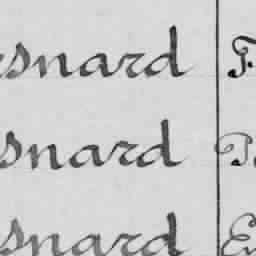 snard F
snard P
snard E